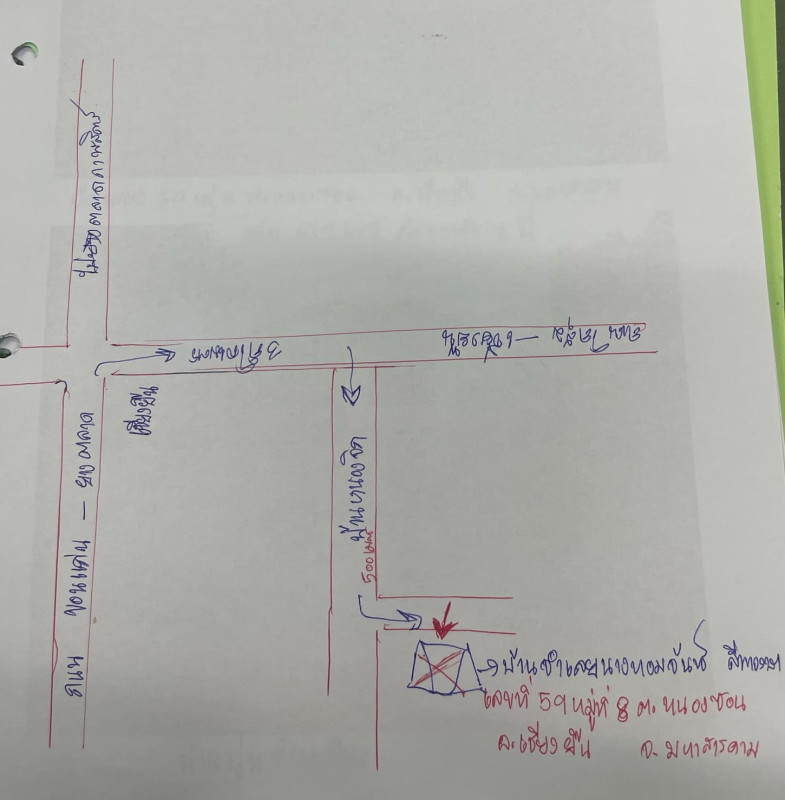 ไปเขื่อนตลาดกาฬสินธุ์
3 กิโลเมตร
ถนน โกสุม – เชียงยืน
เชียงยืน
ถนน ขอนแก่น – ยางตลาด
บ้านหนองจิก
500 เมตร
บ้านจำเลยนางหอมจันทร์
เลขที่ 59 หมู่ที่ 8 ต. หนองซอน
อ. เชียงยืน จ. มหาสารคาม